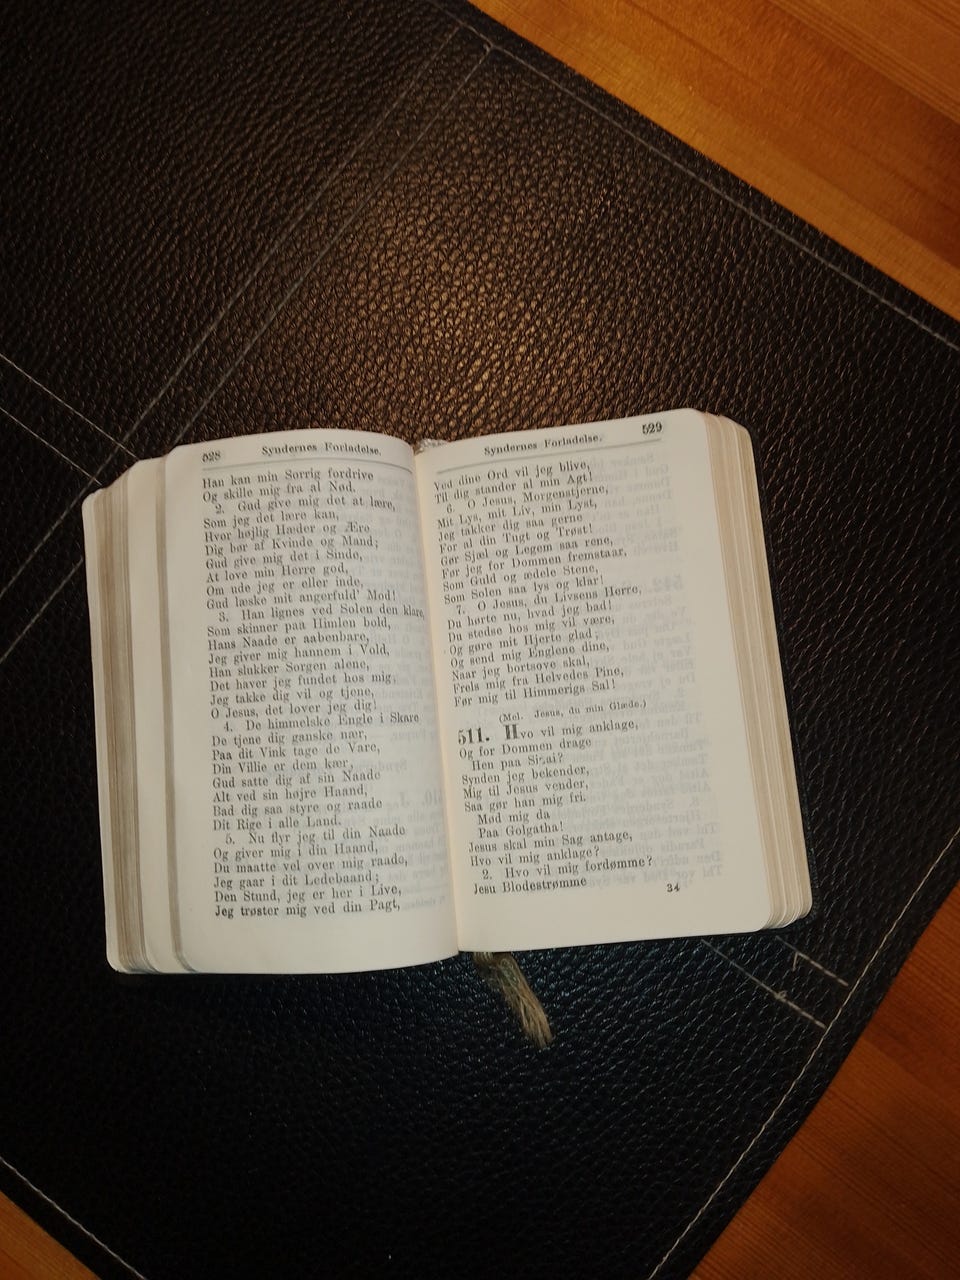 528
Syndernes Forladelse.
Han kan min Sorrig fordrive
Og skille mig fra al Nød.
2. Gud give mig det at lære,
Som jeg det lære kan,
Hvor højlig Hæder og Ære
Dig bør af Kvinde og Mand;
Gud give mig det i Sinde,
At love min Herre god,
Om ude jeg er eller inde,
Gud læske mit angerfuld' Mod!
3. Han lignes ved Solen den klare,
Som skinner paa Himlen bold,
Hans Naade er aabenbare,
Jeg giver mig hannem i Vold,
Han slukker Sorgen alene,
Det haver jeg fundet hos mig,
Jeg takke dig vil og tjene,
O Jesus, det lover jeg dig!
4. De himmelske Engle i Skare
De tjene dig ganske nær,
Paa dit Vink tage de Vare,
Din Villie er dem kær,
Gud satte dig af sin Naade
Alt ved sin højre Haand,
Bad dig saa styre og raade
Dit Rige i alle Land.
5. Nu flyr jeg til din Naade
Og giver mig i din Haand,
Du maatte vel over mig raade,
Jeg gaar i dit Ledebaand;
Den Stund, jeg er her i Live,
Jeg trøster mig ved din Pagt,
Syndernes Forladelse.
529
Ved dine Ord vil jeg blive,
Til dig stander al min Agt!
6. O Jesus, Morgenstjerne,
Mit Lys, mit Liv, min Lyst,
Jeg takker dig saa gerne
For al din Tugt og Trøst!
Gør Sjæl og Legem saa rene,
Før jeg for Dommen fremstaar,
Som Guld og ædele Stene,
Som Solen saa lys og klar!
7. O Jesus, du Livsens Herre,
Du hørte nu, hvad jeg bad!
Du stedse hos mig vil være,
Og gøre mit Hjerte glad;
Og send mig Englene dine,
Naar jeg bortsove skal,
Frels mig fra Helvedes Pine,
Før mig til Himmerigs Sal!
(Mel. Jesus, du min Glæde.)
511. Hvo vil mig anklage,
Og for Dommen drage
Hen paa Sinai?
Synden jeg bekender,
Mig til Jesus vender,
Saa gør han mig fri.
Mød mig da
Paa Golgatha!
Jesus skal min Sag antage,
Hvo vil mig anklage?
2. Hvo vil mig fordømme?
Jesu Blodestrømme
34